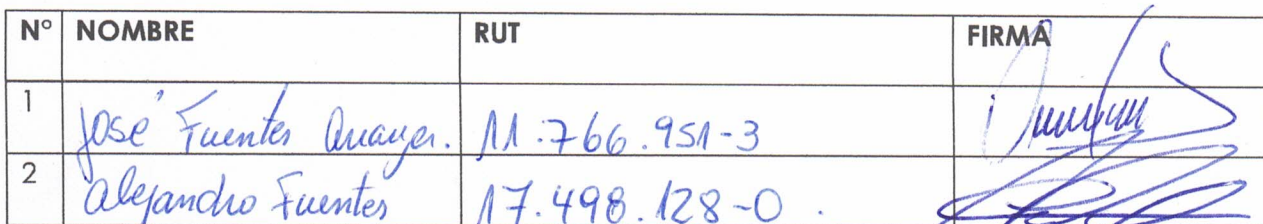 N° NOMBRE RUT FIRMA
1 José Fuentes Anayer. 11.766.951-3
2 Alejandro Fuentes 17.498.128-0.